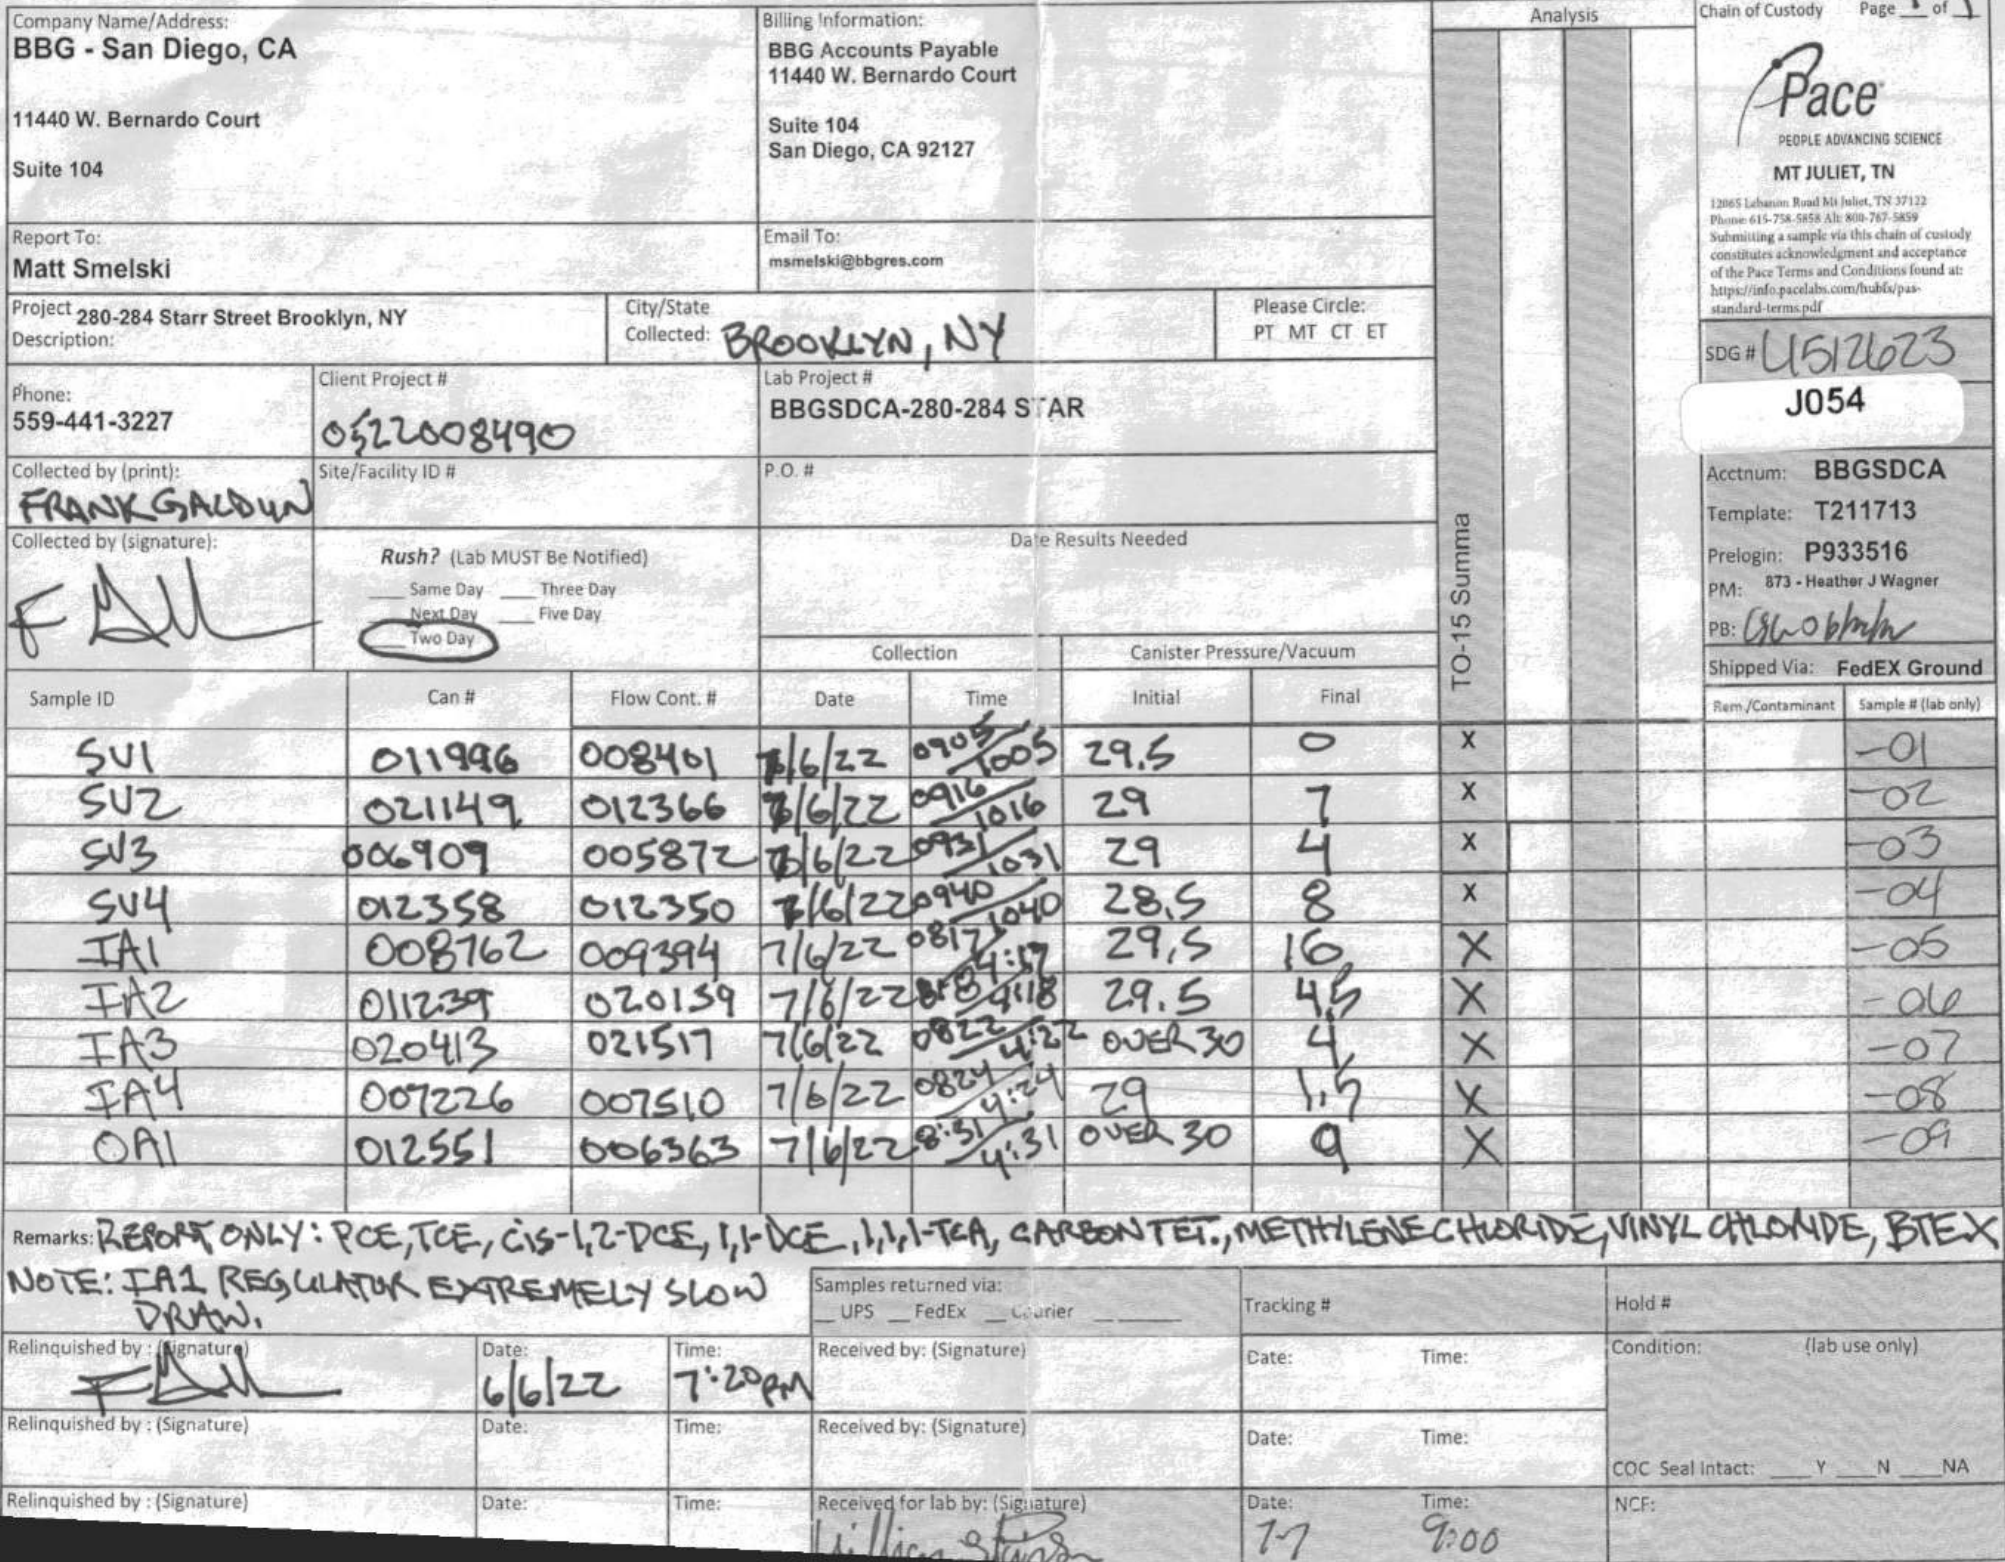 Company Name/Address:
BBG - San Diego, CA
11440 W. Bernardo Court
Suite 104
Billing Information:
BBG Accounts Payable
11440 W. Bernardo Court
Suite 104
San Diego, CA 92127
Analysis
Chain of Custody Page of 1
Pace
PEOPLE ADVANCING SCIENCE
MT JULIET, TN
12065 Lebanon Road Mt Juliet, TN 37122
Phone: 615-758-5858 Alt: 800-767-5859
Submitting a sample via this chain of custody
constitutes acknowledgment and acceptance
of the Pace Terms and Conditions found at:
https://info.pacelabs.com/hubfs/pas-
standard-terms.pdf
Report To:
Matt Smelski
Email To:
msmelski@bbgres.com
Project 280-284 Starr Street Brooklyn, NY
Description:
City/State
Collected: BROOKLYN, NY
Please Circle:
PT MT CT ET
SDG # L1512623
J054
Phone:
559-441-3227
Client Project #
0522008490
Lab Project #
BBGSDCA-280-284 STAR
Collected by (print):
FRANK GALDUN
Site/Facility ID #
P.O. #
Acctnum: BBGSDCA
Template: T211713
Prelogin: P933516
PM: 873 - Heather J Wagner
PB:
Shipped Via: FedEX Ground
Collected by (signature):
Rush? (Lab MUST Be Notified)
___ Same Day ___ Three Day
___ Next Day ___ Five Day
___ Two Day
Date Results Needed
TO-15 Summa
Collection
Canister Pressure/Vacuum
Sample ID Can # Flow Cont. # Date Time Initial Final Rem./Contaminant Sample # (lab only)
SV1 011996 008401 7/6/22 0905/1005 29.5 0 X -01
SV2 021149 012366 7/6/22 0916/1016 29 7 X -02
SV3 006909 005872 7/6/22 0931/1031 29 4 X -03
SV4 012358 012350 7/6/22 0940/1040 28.5 8 X -04
IA1 008762 009394 7/6/22 0817/4:17 29.5 16 X -05
IA2 011239 020139 7/6/22 4:18 29.5 4.5 X -06
IA3 020413 021517 7/6/22 0822/4:22 OVER 30 4 X -07
IA4 007226 007510 7/6/22 0824/4:24 29 1.5 X -08
OA1 012551 006363 7/6/22 8:31/4:31 OVER 30 9 X -09
Remarks: REPORT ONLY: PCE, TCE, Cis-1,2-DCE, 1,1-DCE, 1,1,1-TCA, CARBON TET., METHYLENE CHLORIDE, VINYL CHLORIDE, BTEX
NOTE: IA1 REGULATOR EXTREMELY SLOW
DRAW.
Samples returned via:
__ UPS __ FedEx __ Courier __ ______
Tracking #
Hold #
Relinquished by : (Signature)
Date:
6/6/22
Time:
7:20 PM
Received by: (Signature)
Date: Time:
Condition: (lab use only)
Relinquished by : (Signature)
Date:
Time:
Received by: (Signature)
Date: Time:
COC Seal Intact: ___ Y ___ N ___ NA
Relinquished by : (Signature)
Date:
Time:
Received for lab by: (Signature)
Date:
7-7
Time:
9:00
NCF: